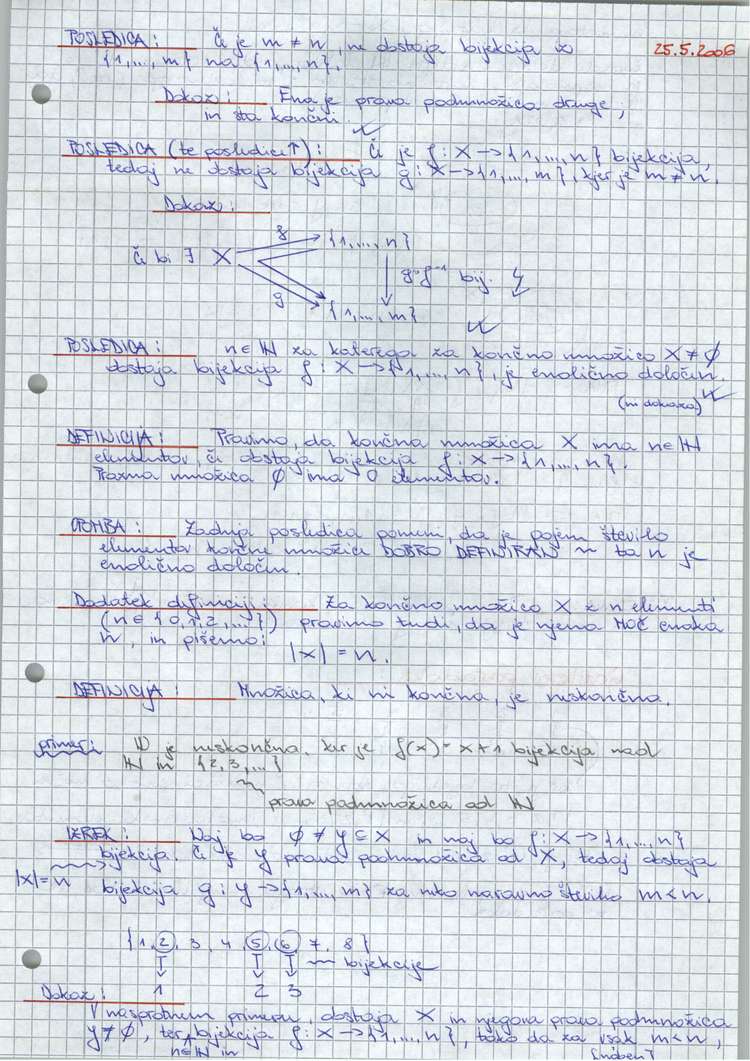 POSLEDICA: Če je m ≠ n, ne obstaja bijekcija iz 25.5.2006
{1,...,m} na {1,...,n}.
Dokaz: Ena je prava podmnožica druge,
in sta končni.
POSLEDICA (te posledice↑): Če je f: X → {1,...,n} bijekcija,
tedaj ne obstaja bijekcija g: X → {1,...,m}, kjer je m ≠ n.
Dokaz:
f {1,...,n}
Če bi ∃ X g∘f⁻¹ bij.
g {1,...,m}
POSLEDICA: n∈ℕ za katerega za končno množico X ≠ ∅
obstaja bijekcija f: X → {1,...,n}, je enolično določen.
(ni dokaza)
DEFINICIJA: Pravimo, da končna množica X ima n∈ℕ
elementov, če obstaja bijekcija f: X → {1,...,n}.
Prazna množica ∅ ima 0 elementov.
OPOMBA: Zadnja posledica pomeni, da je pojem število
elementov končne množice DOBRO DEFINIRAN ~ ta n je
enolično določen.
Dodatek definiciji: Za končno množico X z n elementi
(n∈{0,1,2,...}) pravimo tudi, da je njena MOČ enaka
n, in pišemo:
|X| = n.
DEFINICIJA: Množica, ki ni končna, je neskončna.
primer: ℕ je neskončna, ker je f(x) = x+1 bijekcija med
ℕ in {2,3,...}
prava podmnožica od ℕ
IZREK: Naj bo ∅ ≠ Y ⊆ X in naj bo f: X → {1,...,n}
bijekcija. Če je Y prava podmnožica od X, tedaj obstaja
|X|=n bijekcija g: Y → {1,...,m} za neko naravno število m<n.
{1, 2, 3, 4, 5, 6, 7, 8}
bijekcije
1 2 3
Dokaz:
V nasprotnem primeru, obstaja X in njegova prava podmnožica
Y ≠ ∅, ter bijekcija f: X → {1,...,n}, tako da za vsak m<n,
n∈ℕ in